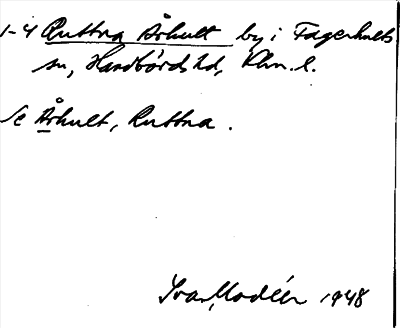 1-4 Ruttna Århult by i Fagerhults
sn, Handbörds hd, Klm. l.
Se Århult, Ruttna.
Ivar Modéer 1948